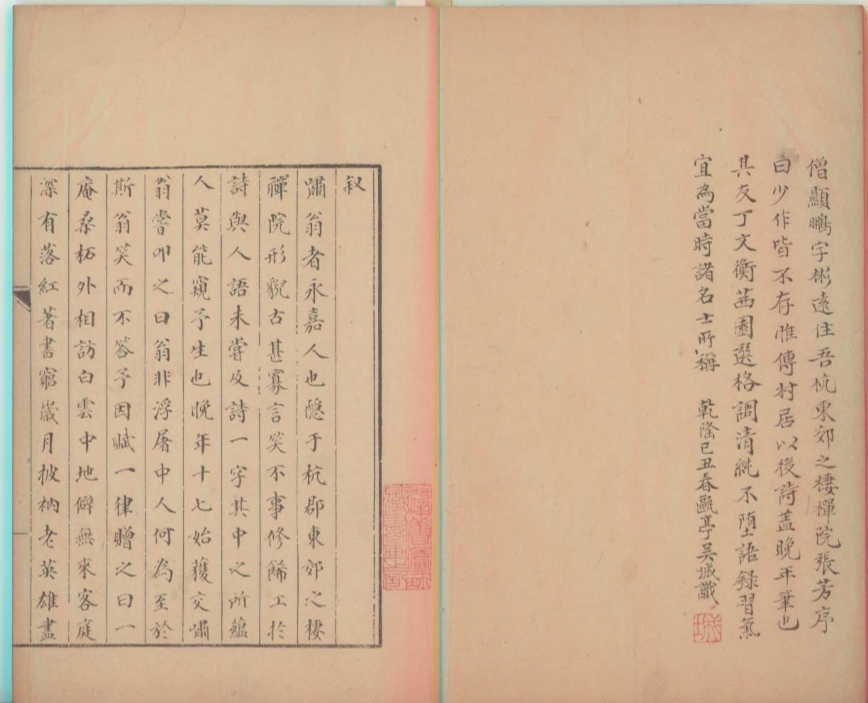 僧顯鵬字彬遠住吾杭東郊之棲禪院張芳序
曰少作皆不存惟傳村居以後詩蓋晚年筆也
其友丁文衡茜園選格調清純不墮語錄習氣
宜為當時諸名士所稱 乾隆己丑春甌亭吳城識
城
叙
嘯翁者永嘉人也隱于杭郡東郊之棲
禪院形貌古甚寡言笑不事修餙工於
詩與人語未嘗及詩一字其中之所蘊
人莫能窺予生也晚年十七始獲交嘯
翁嘗叩之曰翁非浮屠中人何為至於
斯翁笑而不答予因賦一律贈之曰一
庵桑柘外相訪白雲中地僻無來客庭
深有落紅著書窮歲月披衲老英雄盡